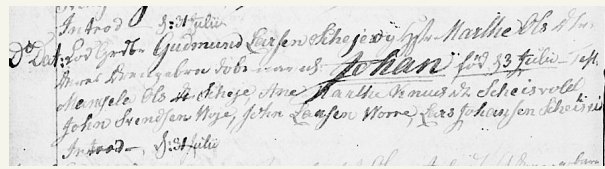 Introd d: 31 Julii
Do Dat: Lod Grdbr Gudmund Larsen Scheje og H. Marthe Ols dtr
deres Drengebarn døbe navnl. Johan fød 13 Julii - Test.
Mangele Ols dtr Scheje, Ane Marthe Knuds dtr Scheisvold
John Svendsen Woje, John Larsen Worre, Lars Johansen Scheisvold
Introd - d: 31 Julii